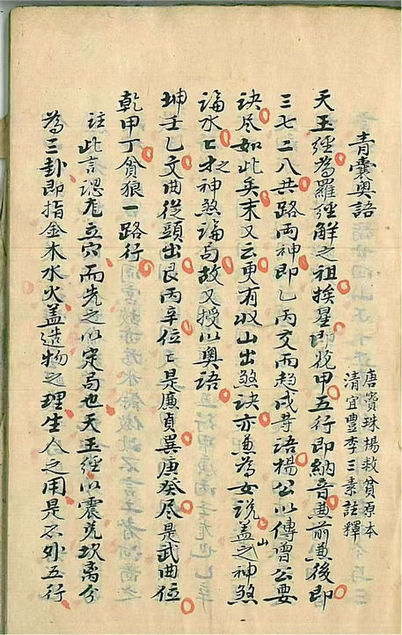 青囊奥語
唐竇珠楊救貧原本
清宜豐李三素註釋
天玉經為羅經解之祖挨星即悅甲五行即納音兼前兼後即
三七二八共路兩神即乙丙交而趋戌等語楊公以傳曾公要
訣尽如此矣末又云更有收山出煞訣亦兼為女說盖山之神煞
論水之神煞論与故又授以奥語
坤壬乙文曲從頭出艮丙辛位々是廉貞巽庚癸尽是武曲位
乾甲丁貪狼一路行
註此言認龙立穴而先之以定局也天玉經以震兑坎離分
為三卦即指金木水火盖造物之理生人之用是不外五行